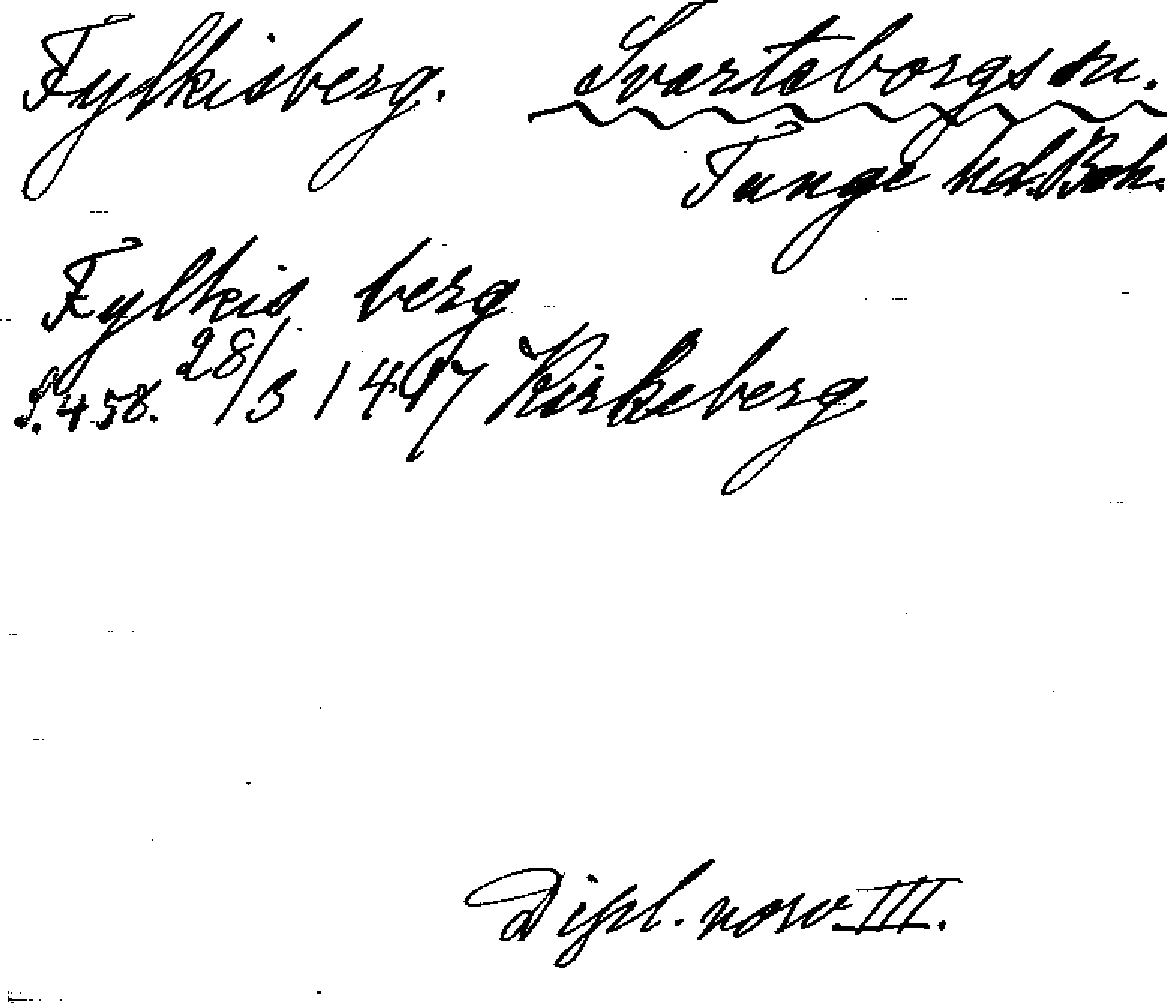 Fylkisberg. Svarteborgs sn.
Tunge hd. Boh.
Fylkis berg
S. 458. 28/3 1417 Kirkeberg
Dipl. norv. III.